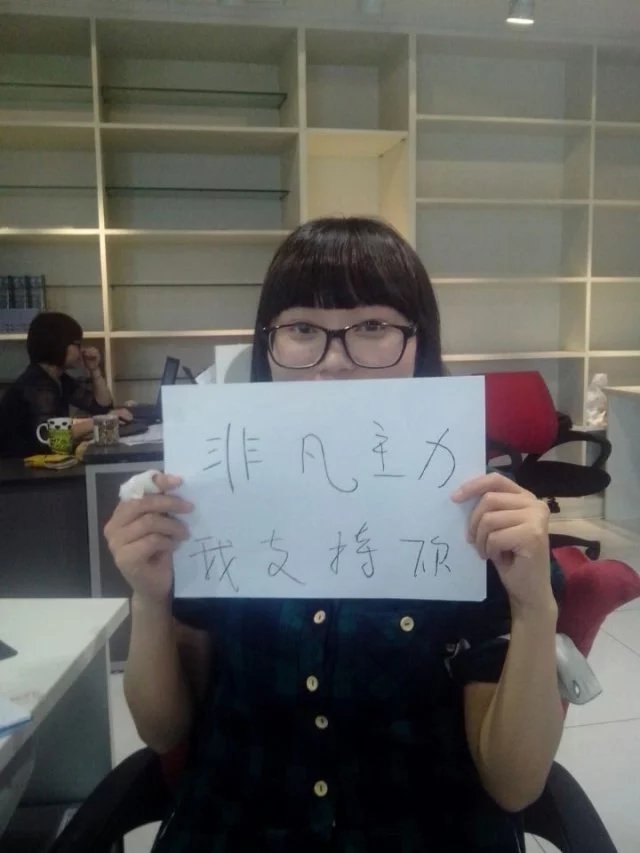 非凡主力
我支持你